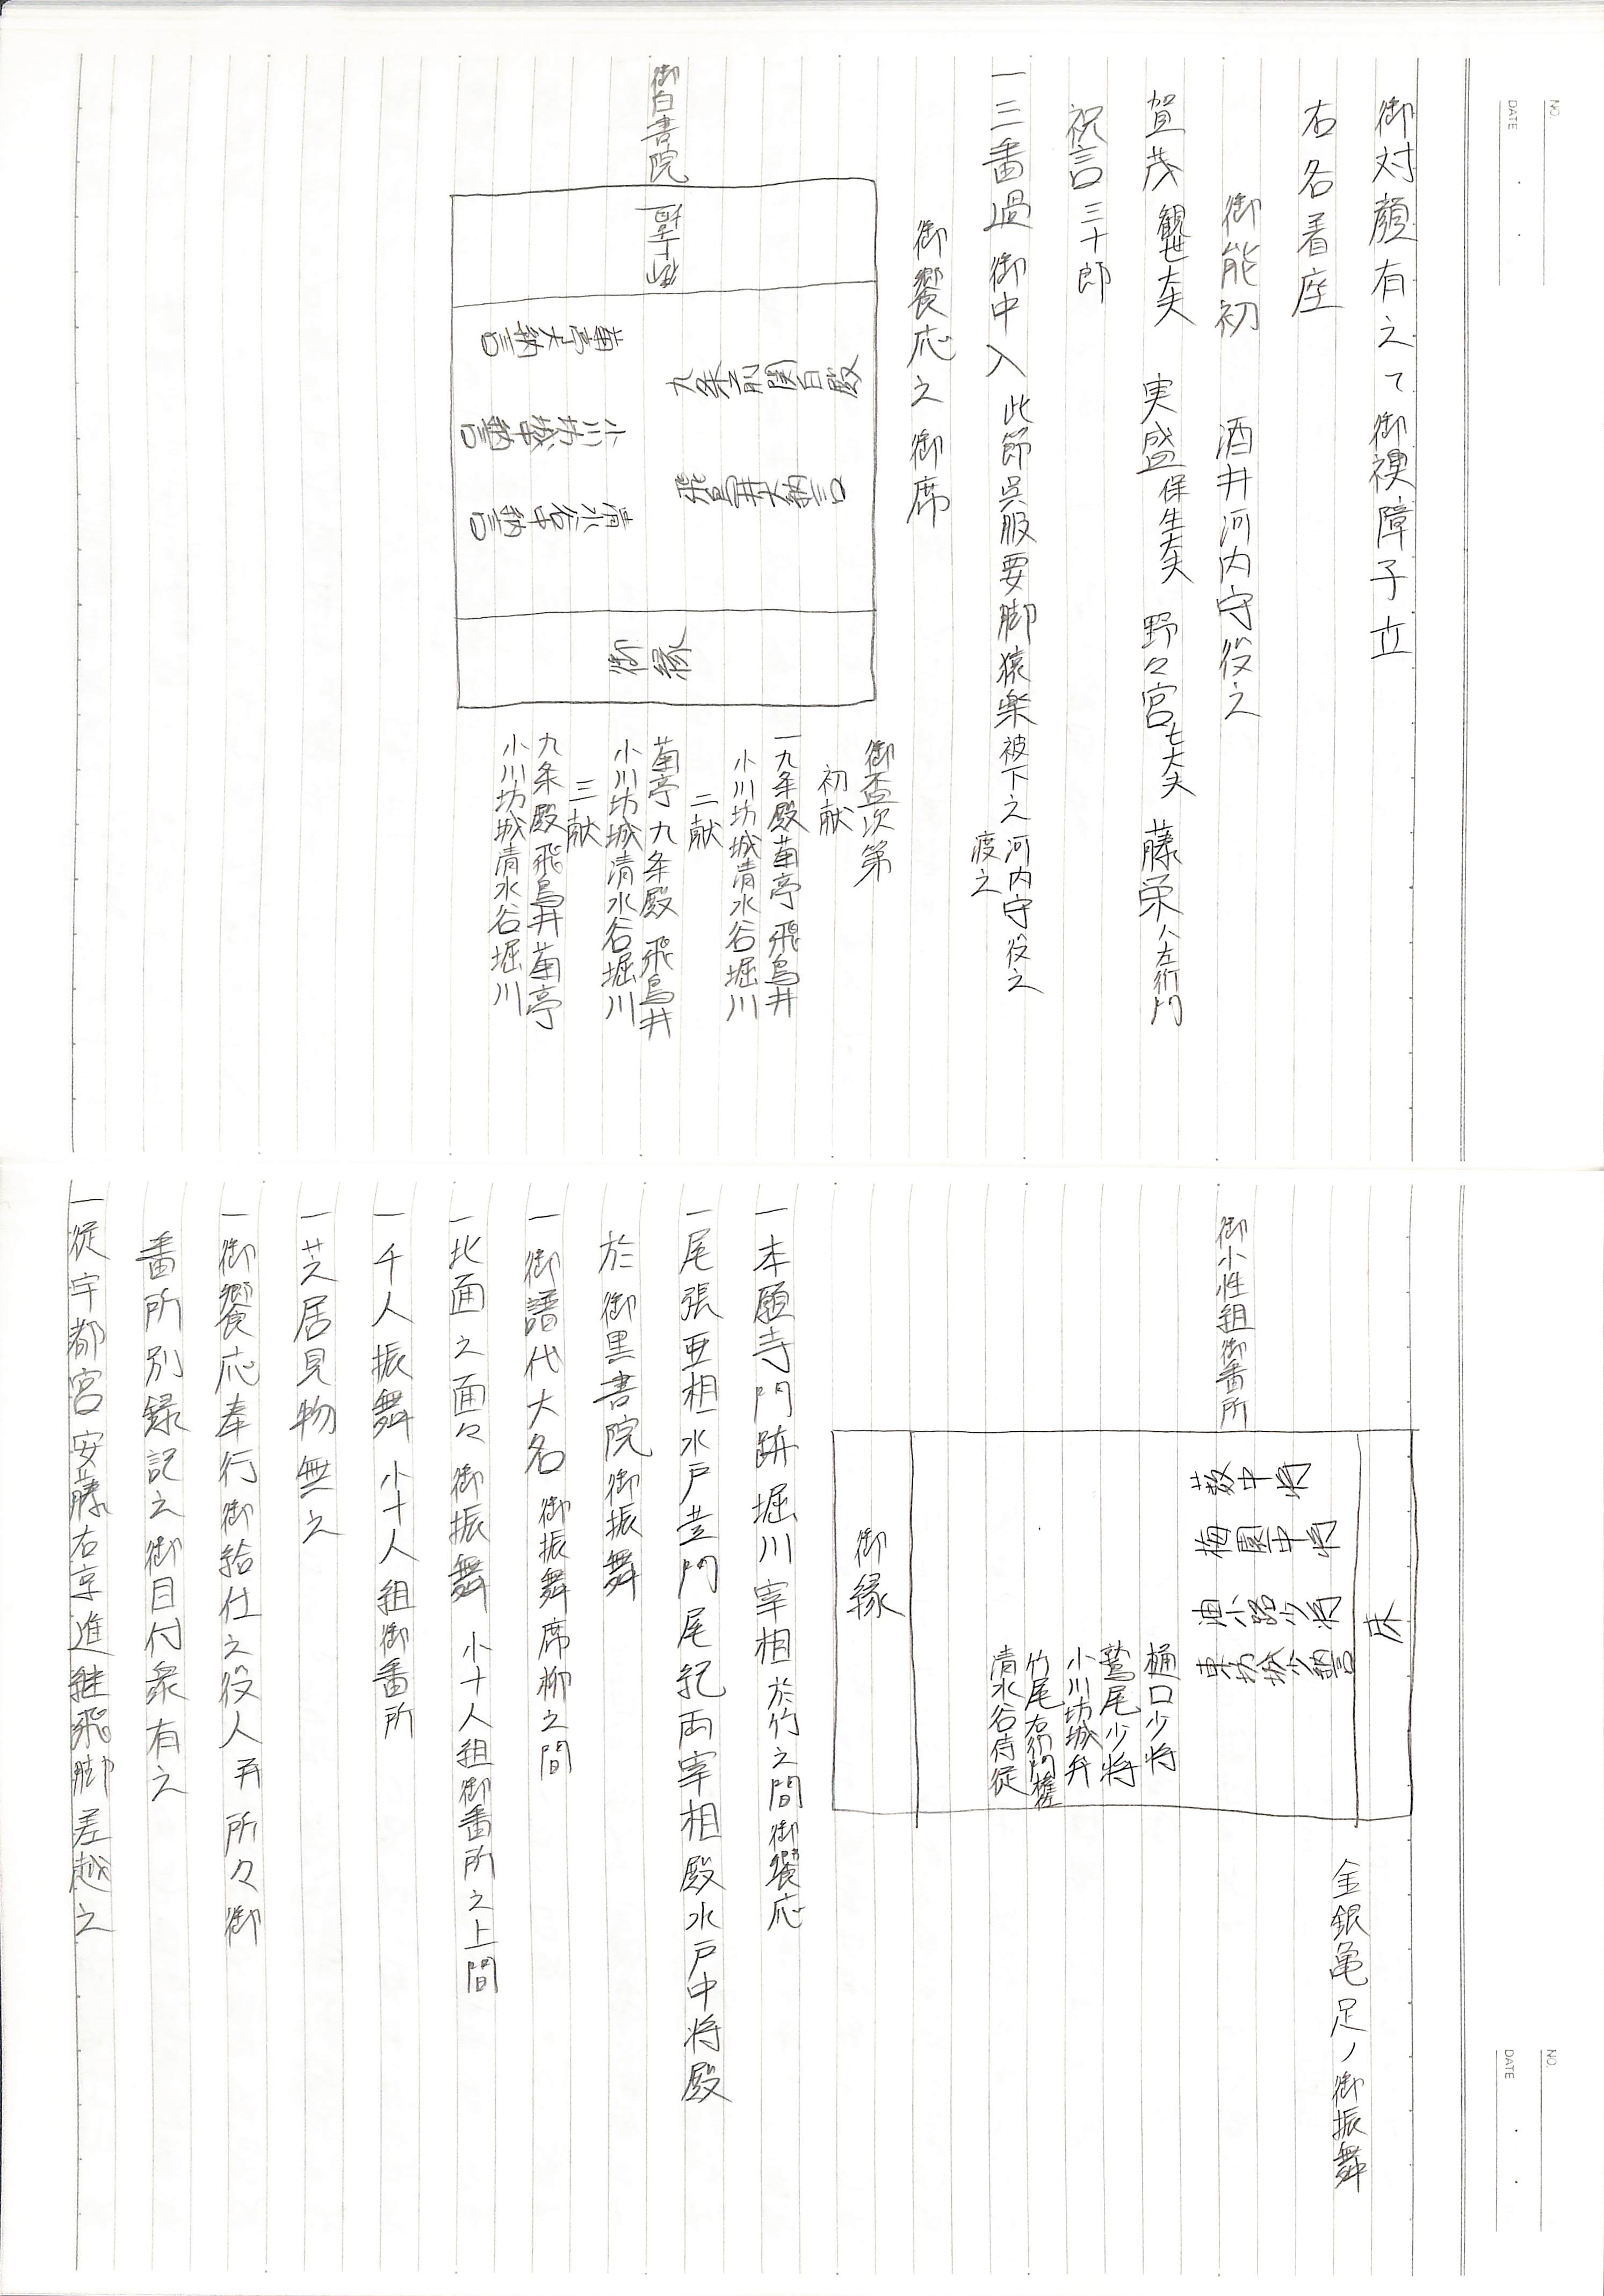 NO.
DATE
御対顔有之て御襖障子立
右各着座
御能初 酒井河内守役之
賀茂 観世大夫 実盛 保生大夫 野々宮 七大夫 藤栄 八左衛門
祝言 三十郎
一三番過御中入 此節呉服要脚猿楽被下之 河内守役之
渡之
御饗応之御席
御白書院
九条前関白殿
飛鳥井大納言
菊亭大納言
小川坊城中納言
清水谷中納言
御縁
御盃次第
初献
一九条殿菊亭飛鳥井
小川坊城清水谷堀川
二献
菊亭九条殿飛鳥井
小川坊城清水谷堀川
三献
九条殿飛鳥井菊亭
小川坊城清水谷堀川
NO.
DATE
金銀亀足ノ御振舞
御小性組御番所
床
藪中将
梅園中将
油小路少将
東坊城少納言
樋口少将
鷲尾少将
小川坊城弁
竹尾右衛門権佐
清水谷侍従
御縁
一本願寺門跡堀川宰相於竹之間御饗応
一尾張亜相水戸黄門尾紀両宰相殿水戸中将殿
於御黒書院御振舞
一御譜代大名御振舞席柳之間
一北面之面々御振舞 小十人組御番所之上間
一千人振舞 小十人組御番所
一芝居見物無之
一御饗応奉行御給仕之役人并所々御
番所別録記之御目付衆有之
一従宇都宮安藤右京進継飛脚差越之